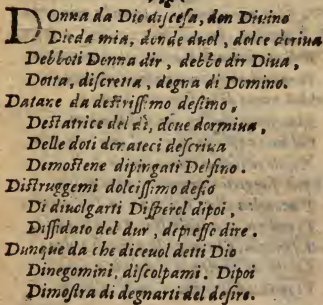 DOnna da Dio discesa, don Diuino
Dieda mia, donde duol, dolce deriua
Debboti Donna dir, debbo dir Diua,
Dotta, discretta, degna di Domino.
Datane da destrissimo destino,
Destatrice del dì, doue dormiua,
Delle doti donateci descriua
Demostene dipingati Delfino.
Distruggemi dolcissimo desio
Di diuolgarti Disperel dipoi,
Diffidato del dur, depresso dire.
Dunque da che diceuol detti Dio
Dinegomini, discolpami. Dipoi
Dimostra di degnarti del desire.